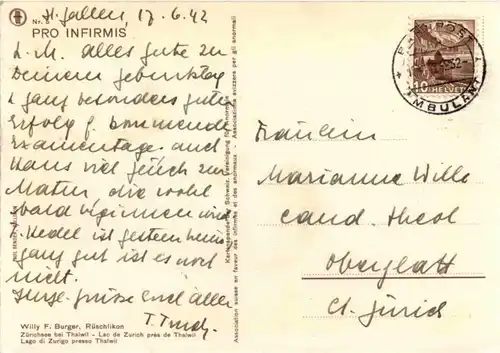 St. Gallen, 17.6.42
Nr. 6
PRO INFIRMIS
L. M. alles gute zu
Deinem geburtstag
& ganz besonders guten
Erfolg f. kommende
Examentage. auch
Hans viel glück zur
Matur, die wohl
bald beginnen wird.
ist gestern
ganz gut ist es noch
nicht.
grüsse Euch allen
Willy F. Burger, Rüschlikon
Zürichsee bei Thalwil – Lac de Zurich près de Thalwil
Lago di Zurigo presso Thalwil
Kartenspende der Schweiz. Vereinigung für Anormale
Association suisse en faveur des infirmes et des anormaux
Associazione svizzera per gli anormali
10 HELVETIA
AMBULANT
Fräulein
Marianne Wille
cand. theol
Oberglatt
Ct. Zürich